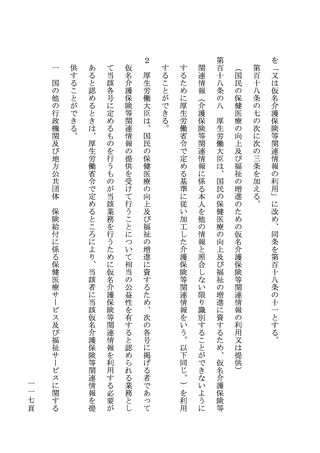 を「又は仮名介護保険等関連情報の利用」に改め、同条を第百十八条の十一とする。
第百十八条の七の次に次の三条を加える。
（国民の保健医療の向上及び福祉の増進のための仮名介護保険等関連情報の利用又は提供）
第百十八条の八　厚生労働大臣は、国民の保健医療の向上及び福祉の増進に資するため、仮名介護保険等
関連情報（介護保険等関連情報に係る本人を他の情報と照合しない限り識別することができないように
するために厚生労働省令で定める基準に従い加工した介護保険等関連情報をいう。以下同じ。）を利用
することができる。
２　厚生労働大臣は、国民の保健医療の向上及び福祉の増進に資するため、次の各号に掲げる者であって
仮名介護保険等関連情報の提供を受けて行うことについて相当の公益性を有すると認められる業務とし
て当該各号に定めるものを行うものが当該業務を行うために仮名介護保険等関連情報を利用する必要が
あると認めるときは、厚生労働省令で定めるところにより、当該者に当該仮名介護保険等関連情報を提
供することができる。
一　国の他の行政機関及び地方公共団体　保険給付に係る保健医療サービス及び福祉サービスに関する
一一七頁